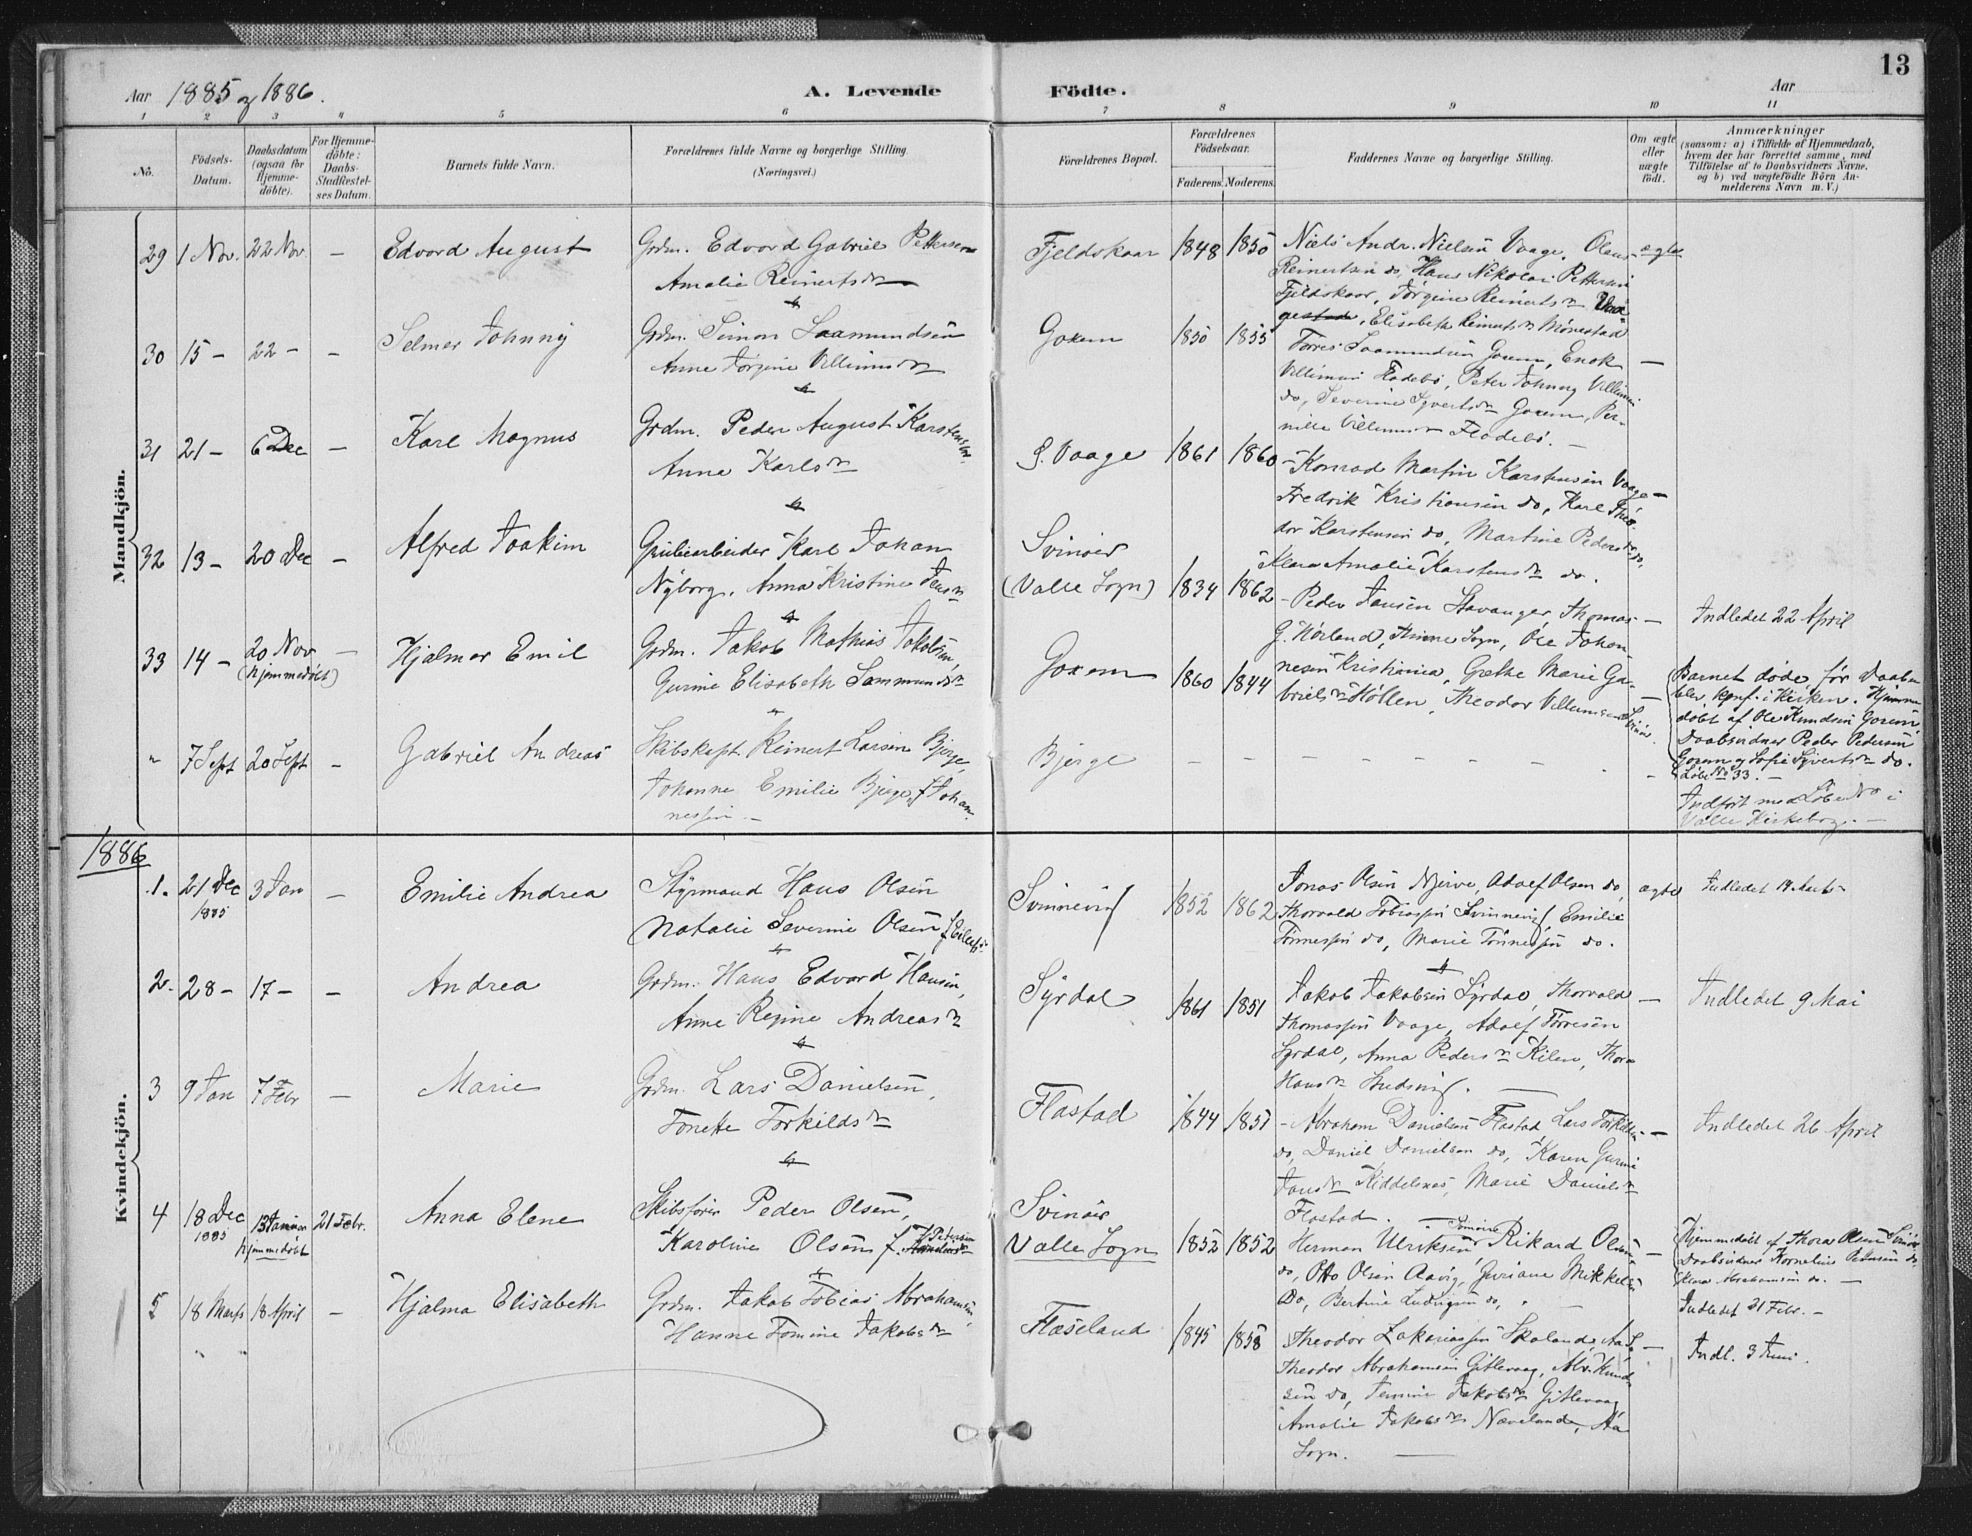 13
Aar 1885 og 1886.
A. Levende Födte.
Aar
1 2 3 4 5 6 7 8 9 10 11
No.
Födsels-Datum.
Daabsdatum (ogsaa for Hjemme-döbte).
For Hjemme-döbte: Daabs-Stadfæstel-ses Datum.
Barnets fulde Navn.
Forældrenes fulde Navne og borgerlige Stilling. (Næringsvei.)
Forældrenes Bopæl.
Forældrenes Födselsaar.
Faderens. Moderens.
Faddernes Navne og borgerlige Stilling.
Om ægte eller uægte födt.
Anmærkninger
(saasom: a) i Tilfælde af Hjemmedaab, hvem der har forrettet samme, med Tilföielse af to Daabsvidners Navne. og b) ved uægtefödte Börn An-melderens Navn m. V.)
Mandkjön.
29 1 Nov. 22 Nov. – Edvard August
Grdm. Edvard Gabriel Pettersen
Amalie Reinertsdr
Fjeldskaar 1848 1850
Niels Andr. Nielsen Vaage, Olaus
Reinertsen do, Hans Nikolai Pettersen
Fjeldskaar, Jørgine Reinertsdr
Elisabeth Reinertsdr Mönestad
ægte
30 15 – 22 – – Selmer Johnny
Grdm. Simon Saamundsen
Anne Jörgine Villumsdr
Goxem 1850 1855
Torres Saamundsen Goxem, Enok
Villumsen Flodebö, Peter Johnny Villumsen
do, Severine Syvertsdr Goxem, Per-
nille Villumsdr Flodebö. –
31 21 – 6 Dec – Karl Magnus
Grdm. Peder August Karstensen.
Anne Karlsdr
S. Vaage 1861 1860
Konrad Martin Karstensen Vaage –
Fredrik Kristiansen do, Karl Theo-
dor Karstensen do, Martine Pedersdr do,
Klara Amalie Karstensdr do.
32 13 – 20 Dec – Alfred Joakim
Grubearbeider Karl Johan
Nyborg, Anna Kristine Jensdr
Svinöer
(Valle Sogn) 1834 1862
Peder Jansen Stavanger, Thomas –
G. Hörland, Sogn, Ole Johan-
nesen Kristiania, Grethe Marie Ga-
brielsdr Höllen, Theodor Villumsen Svinöer.
Indledet 22 April
33 14 – 20 Nov – (hjemmedöbt)
Hjalmar Emil
Grdm. Jakob Mathias Jakobsen,
Gurine Elisabeth Sammundsdr
Goxem 1860 1844
Barnet döde, för Daaben
blev konf. i Kirken. Hjemme
döbt af Ole Knudsen Goxem,
Daabsvidner Peder Pedersen
Goxem og Sofie Syvertsdr do.
" 7 Sept 20 Sept – Gabriel Andreas
Skibskapt. Reinert Larsen Bjerge,
Johanne Emilie Bjerge f. Johan-
nessen –
Bjerge – – – – –
Löbe No 33. –
Indfört med Löbe No i
Valle Kirkebog. –
1886
Kvindekjön.
1. 21 Dec 1885 3 Jan – Emilie Andrea
Styrmand Hans Olsen
Natalie Severine Olsen f. Eilefs
Svinnevig 1852 1862
Jonas Olsen Njerve, Adolf Olsen do,
Thorvald Tobiassen Svinnevig, Emilie
Tönnessen do, Marie Tönnessen do.
ægte
2. 28 – 17 – – Andrea
Grdm. Hans Edvard Hansen,
Anne Regine Andreasdr
Syrdal 1861 1851
Jakob Jakobsen Syrdal, Thorvald –
Thomassen Vaage, Adolf Torresen
Syrdal, Anna Pedersdr Kilen, Thora
Hansdr
Indledet 9 Mai
3 9 Jan 7 Febr – Marie
Grdm. Lars Danielsen,
Tonette Torkildsdr
Flastad 1844 1851
Abraham Danielsen Flastad, Lars Torkildsen –
do, Daniel Danielsen do, Karen Gurine
Jansdr Kiddelsnes, Marie Danielsdr
Flastad. –
Indledet 26 April
4 18 Dec 1885 13 Januar hjemmedöbt 21 Febr. Anna Elene
Skibsförer Peder Olsen,
Karoline Olsen f. Petersen
Svinöer
Valle Sogn 1852 1852
Herman Ulriksen Svinöer, Rikard Olsen –
do, Otto Olsen Aavig, Guriane Mikkelsen
do, Bertine Ludvigsen do,
Hjemmedöbt af Thora Olsen Svinöer
Daabsvidner Kornelius Pettersen do
Abrahamsen do. –
Indledet 21 Febr. –
5 18 Marts 18 April – Hjalma Elisabeth
Grdm. Jakob Tobias Abrahamsen,
Hanne Tomine Jakobsdr
Flaseland 1845 1858
Theodor Zakariassen Skoland, Aa S. –
Theodor Abrahamsen Gitlevaag, Abr. Knud-
sen do, Jakobsdr Gitlevaag,
Amalie Jakobsdr Næveland, Aa
Sogn. –
Indl. 3 Juni.